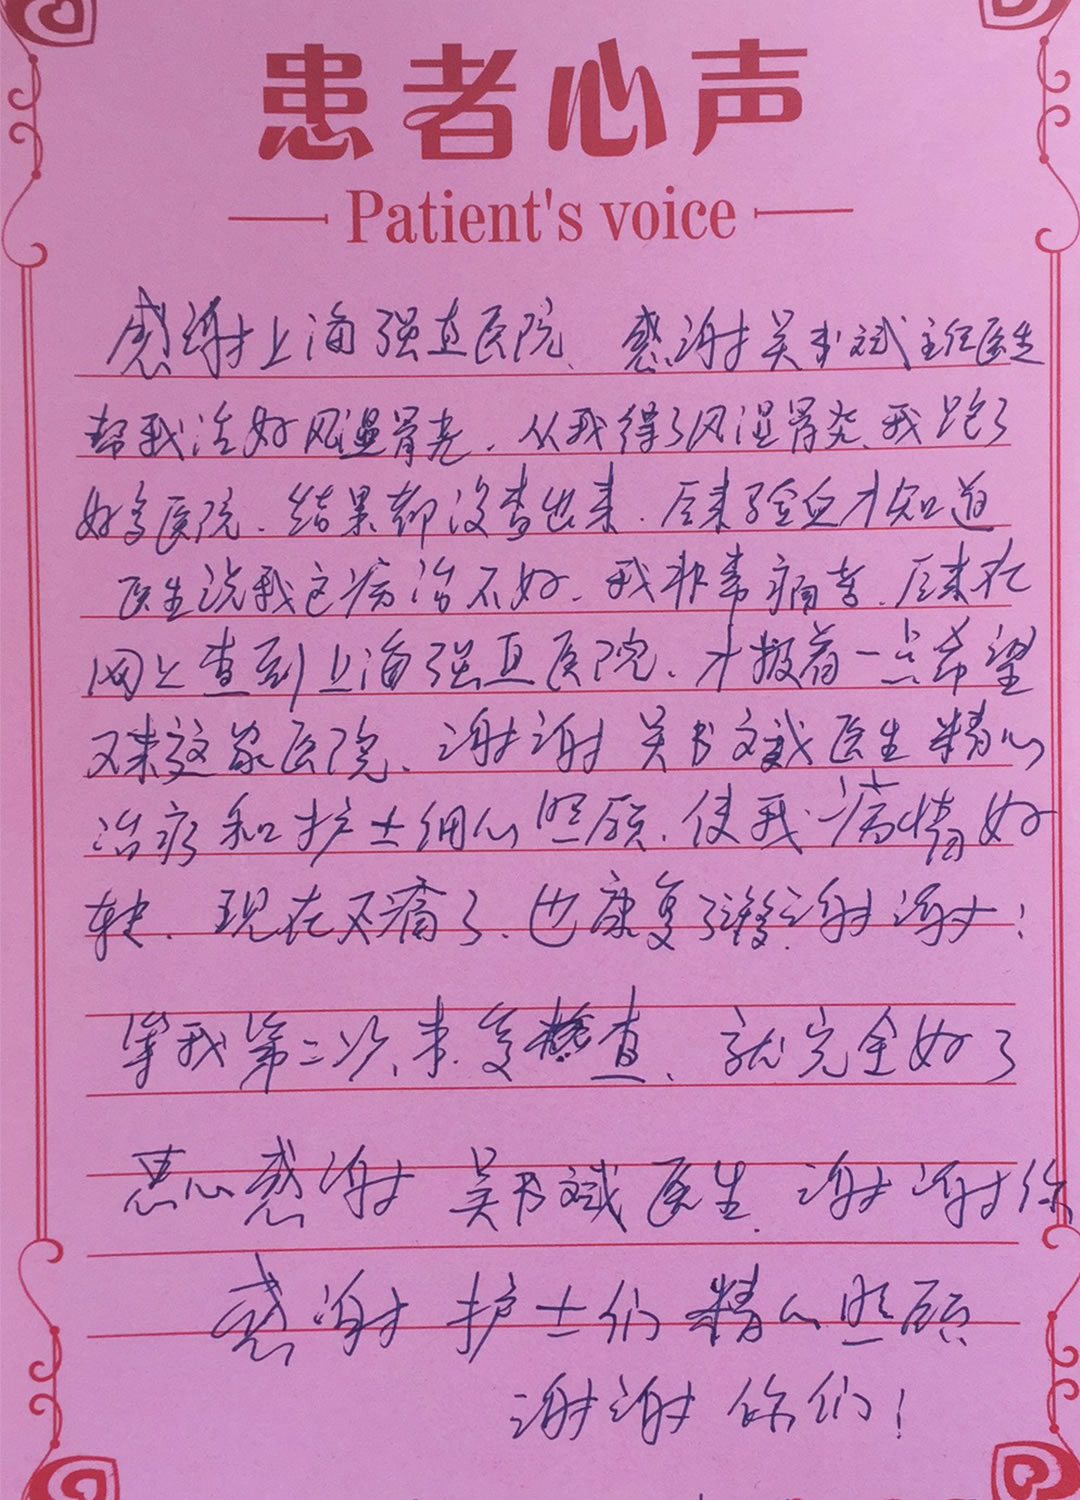 患者心声
Patient's voice
感谢上海强直医院、感谢吴书斌主任医生
帮我治好风湿骨炎、从我得了风湿骨炎、我跑了
好多医院、结果都没查出来、后来验血才知道
医生说我这病治不好、我非常痛苦、后来在
网上查到上海强直医院、才报着一点希望
又来这家医院、谢谢吴书斌医生精心
治疗和护士细心照顾、使我病情好
转、现在不痛了、也康复了 谢谢!
等我第二次来复查、就完全好了
衷心感谢吴书斌医生、谢谢你
感谢护士们精心照顾
谢谢你们!